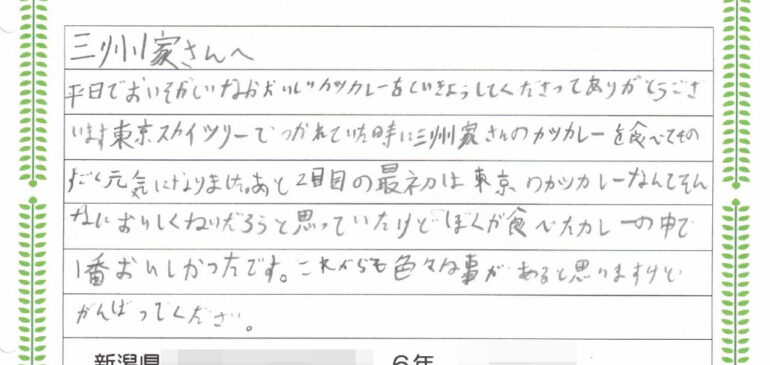 三州家さんへ
平日でおいそがしいなかおいしいカツカレーをていきょうしてくださってありがとうござ
います東京スカイツリーでつかれていた時に三州家さんのカツカレーを食べてもの
すごく元気になりました。あと2日目の最初は東京のカツカレーなんてそん
なにおいしくねいだろうと思っていたけどぼくが食べたカレーの中で
1番おいしかったです。これからも色々な事があると思いますけど
がんばってください。
新潟県 6年